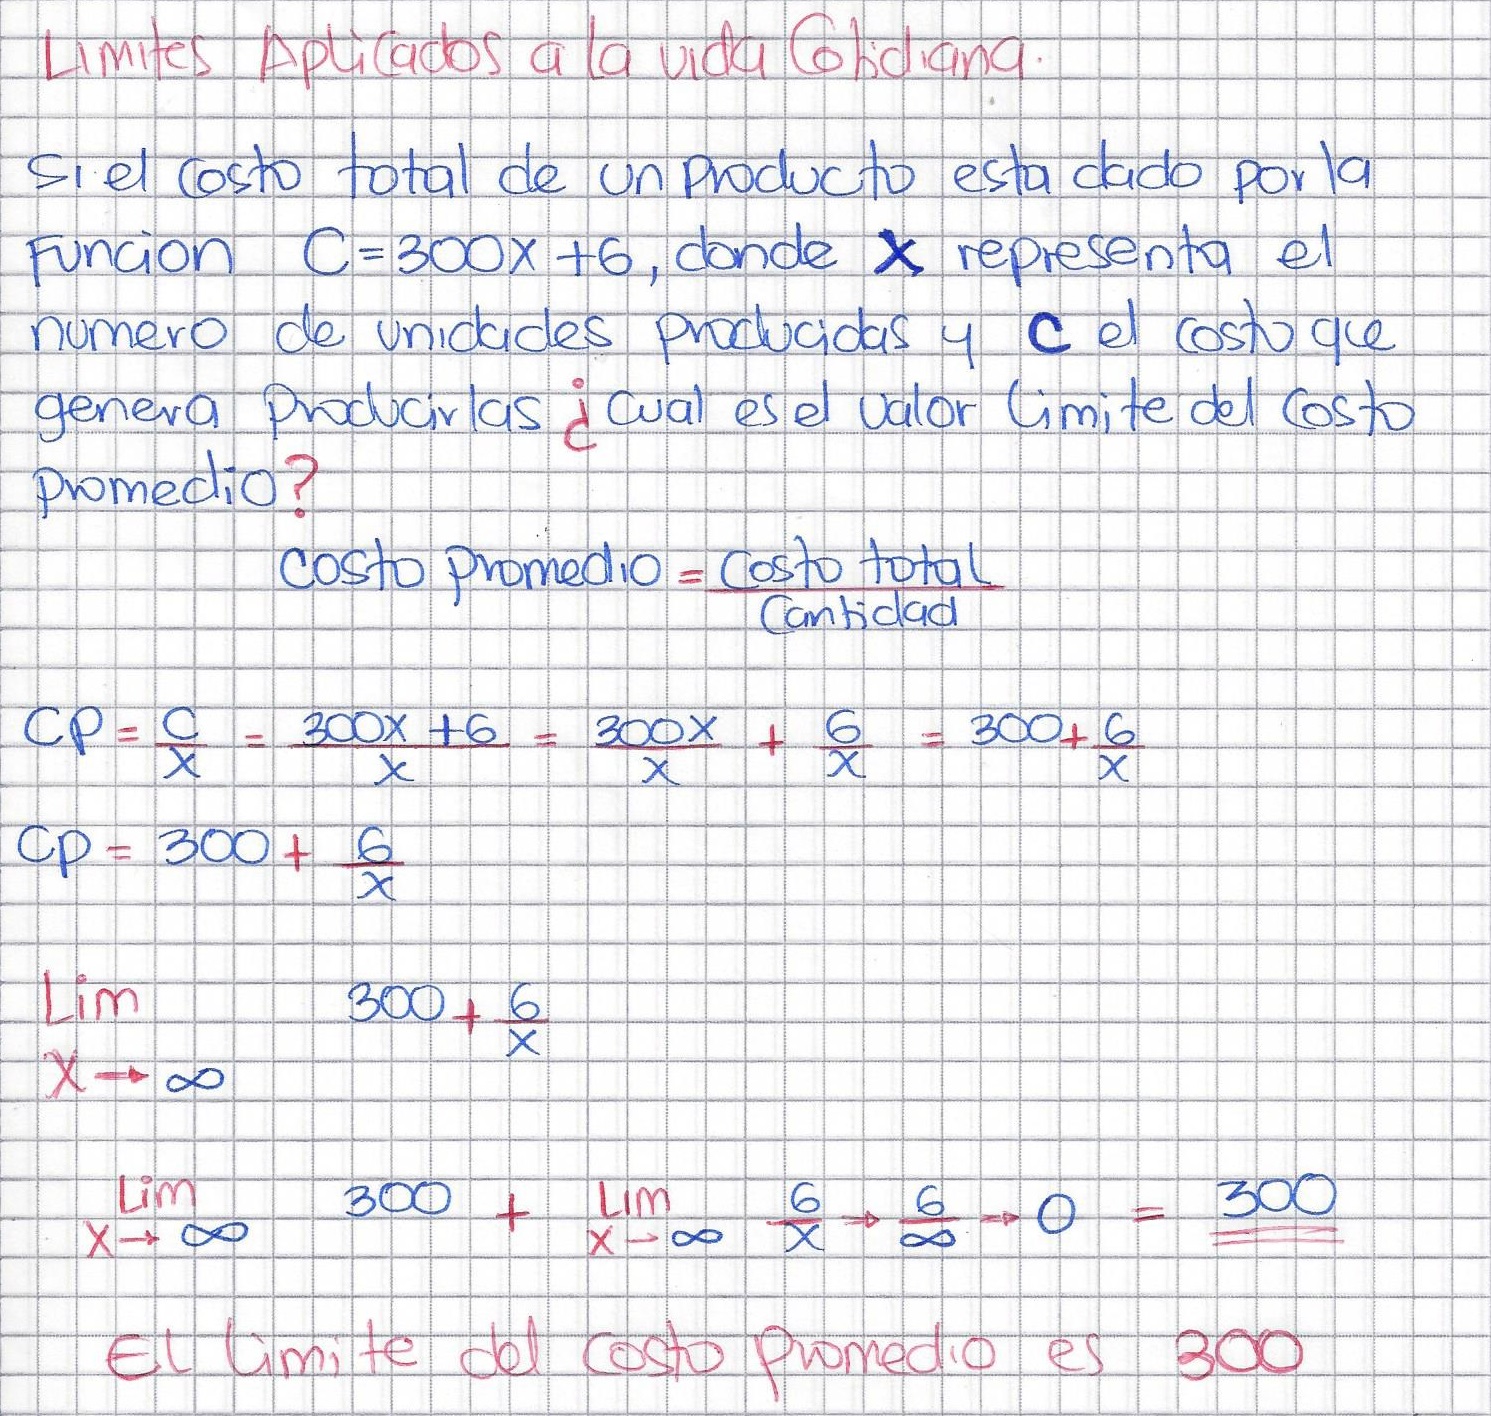 Limites Aplicados a la vida Cotidiana.
Si el costo total de un producto esta dado por la
Funcion C=300x+6, donde x representa el
numero de unidades producidas y C el costo que
genera producirlas ¿cual es el valor limite del costo
promedio?
costo promedio = costo total / Cantidad
CP = C/x = 300x+6/x = 300x/x + 6/x = 300+6/x
Cp = 300 + 6/x
Lim 300 + 6/x
x → ∞
Lim x→∞ 300 + Lim x→∞ 6/x → 6/∞ → 0 = 300
El limite del costo promedio es 300